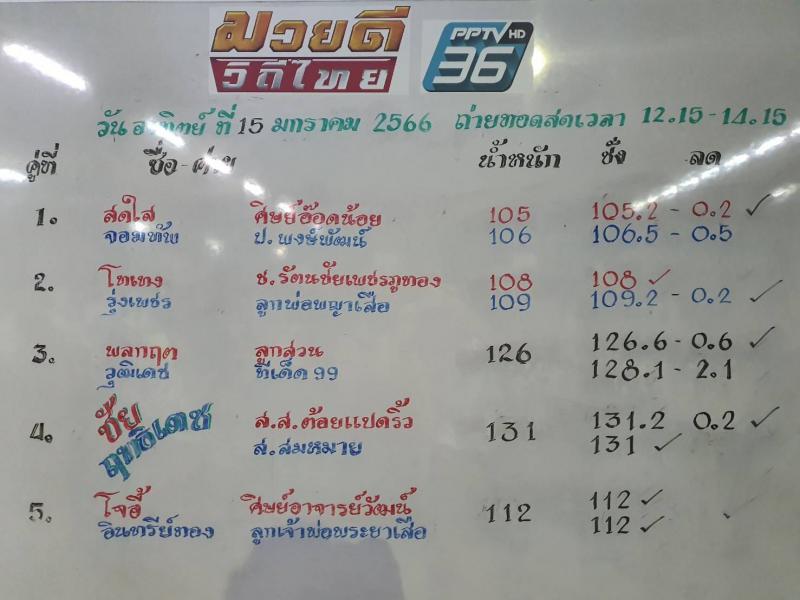 มวยดี
วิถีไทย
PPTV HD
36
วันอาทิตย์ ที่ 15 มกราคม 2566 ถ่ายทอดสดเวลา 12.15-14.15
คู่ที่ ชื่อ-ค่าย น้ำหนัก ชั่ง ลด
1. สดใส ศิษย์อ๊อดน้อย 105 105.2 - 0.2 ✓
จอมทัพ ป.พงษ์พัฒน์ 106 106.5 - 0.5
2. โทเทง ช.รัตนชัยเพชรภูทอง 108 108 ✓
รุ่งเพชร ลูกพ่อพญาเสือ 109 109.2 - 0.2 ✓
3. พลกฤต ลูกสวน 126 126.6 - 0.6 ✓
วุฒิเดช ทีเด็ด 99 128.1 - 2.1
4. ชัย ส.ส.ต้อยแปดริ้ว 131 131.2 0.2 ✓
ฤทธิเดช ส.สมหมาย 131 ✓
5. โจอี้ ศิษย์อาจารย์วัฒน์ 112 112 ✓
อินทรีย์ทอง ลูกเจ้าพ่อพระยาเสือ 112 ✓